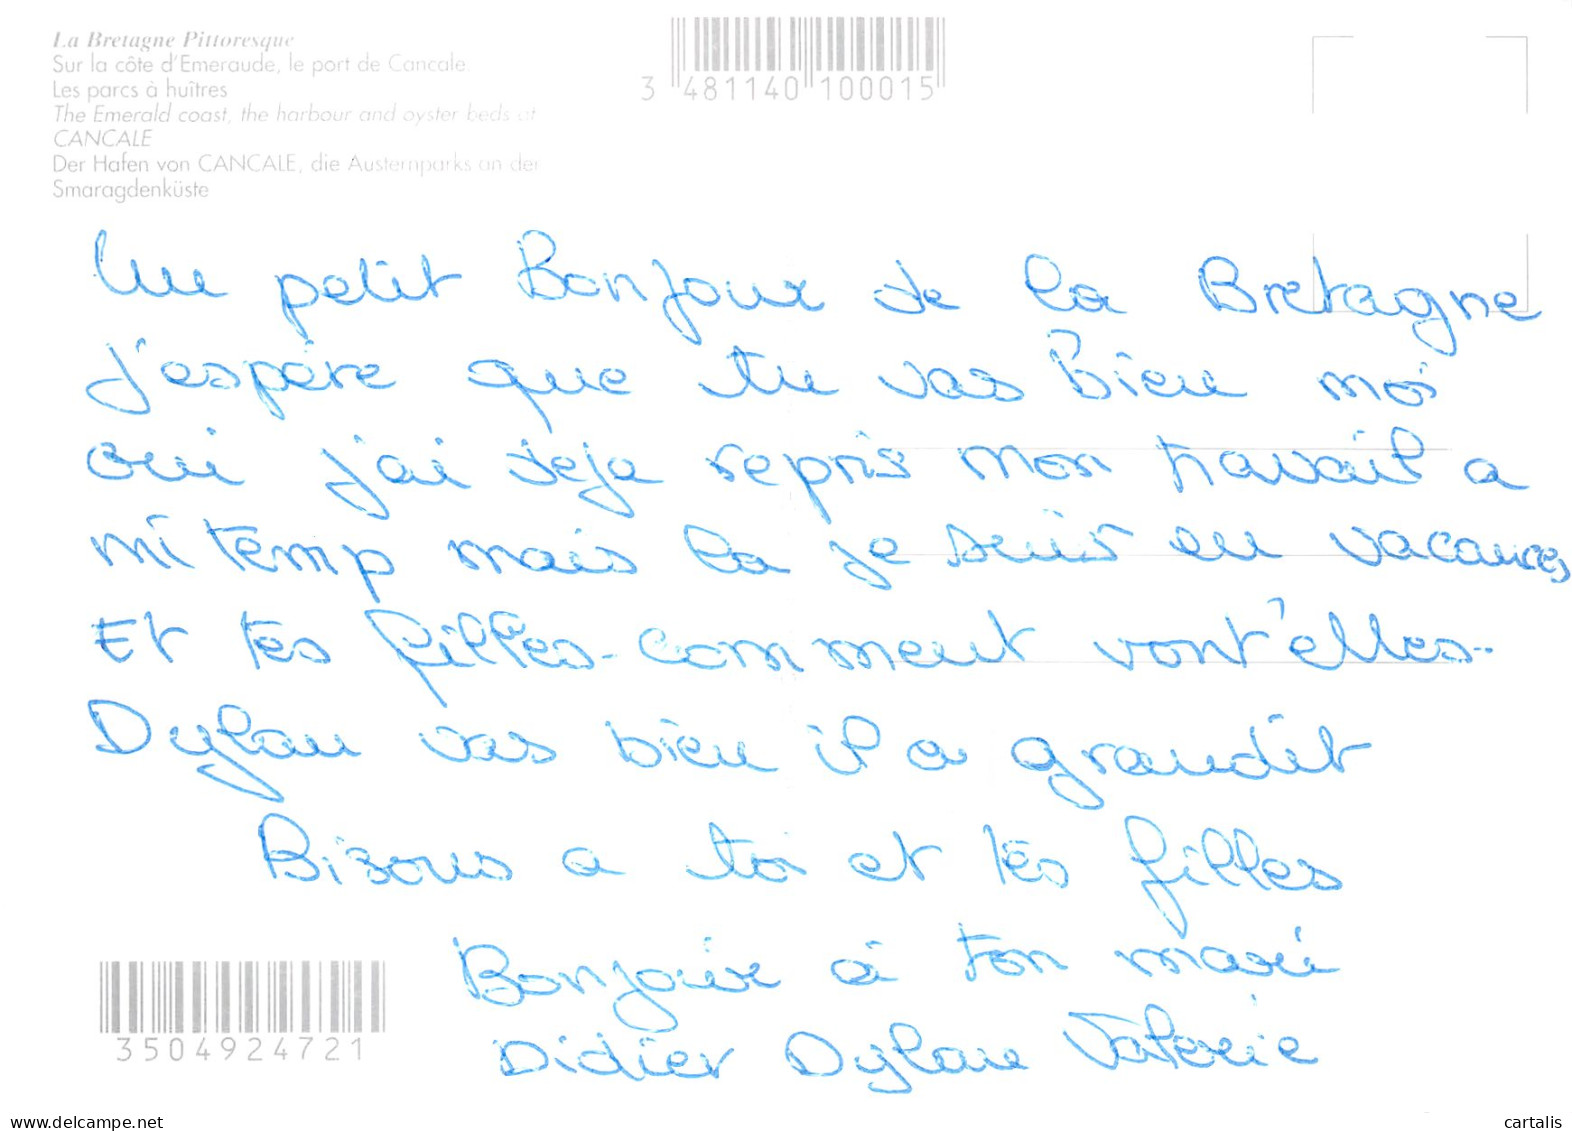 La Bretagne Pittoresque
Sur la côte d'Emeraude, le port de Cancale
Les parcs à huîtres
The Emerald coast, the harbour and oyster beds at
CANCALE
Der Hafen von CANCALE, die Austernparks an der
Smaragdenküste
3 481140 100015
Un petit Bonjour de la Bretagne
J'espère que tu vas Bien moi
oui j'ai deja repris mon travail a
mi temp mais la je suis en vacances
Et tes filles - comment vont'elles..
Dylan vas bien il a grandit
Bizous a toi et tes filles
Bonjour à ton mari
Didier Dylan Valerie
3504924721
www.delcampe.net
cartalis